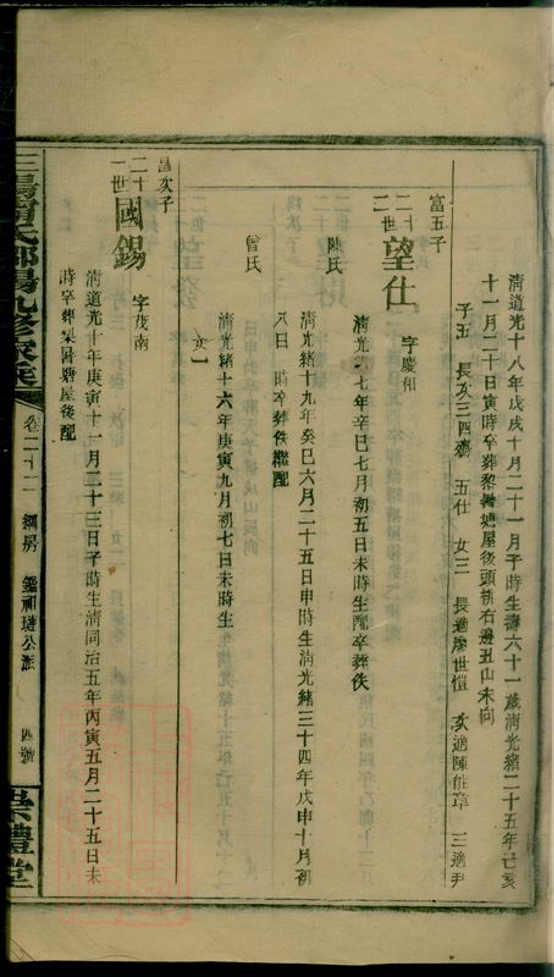 清道光十八年戊戌十月二十一月子時生壽六十一歲清光緒二十五年己亥
十一月二十日寅時卒葬黎樹塘屋後頭排右邊丑山未向
子五 長 次 三 四殤 五仕 女三 長適廖世愷 次適陳能章 三適尹
富五子
二十二世 望仕 字慶和
清光緒七年辛巳七月初五日未時生配卒葬佚
陳氏
清光緒十九年癸巳六月二十五日申時生清光緒三十四年戊申十月初
八日 時卒葬佚繼配
曾氏
清光緒十六年庚寅九月初七日未時生
女一
昌次子
二十一世 國錫 字茂南
清道光十年庚寅十一月二十三日子時生清同治五年丙寅五月二十五日未
時卒葬梨樹塘屋後配
卷二十二 綱房 鑑和璉公派 四號
崇禮堂